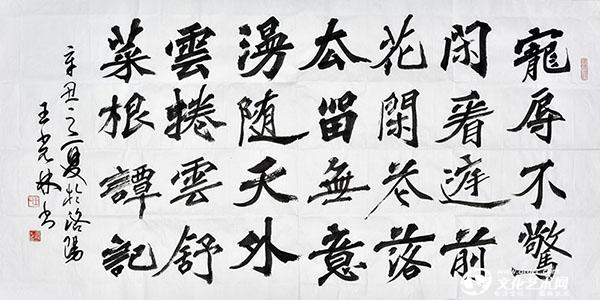 寵辱不驚
閑看庭前
花開花落
去留無意
漫随天外
雲捲雲舒
菜根譚記
辛丑之夏於洛陽
王光林书
文化艺术网